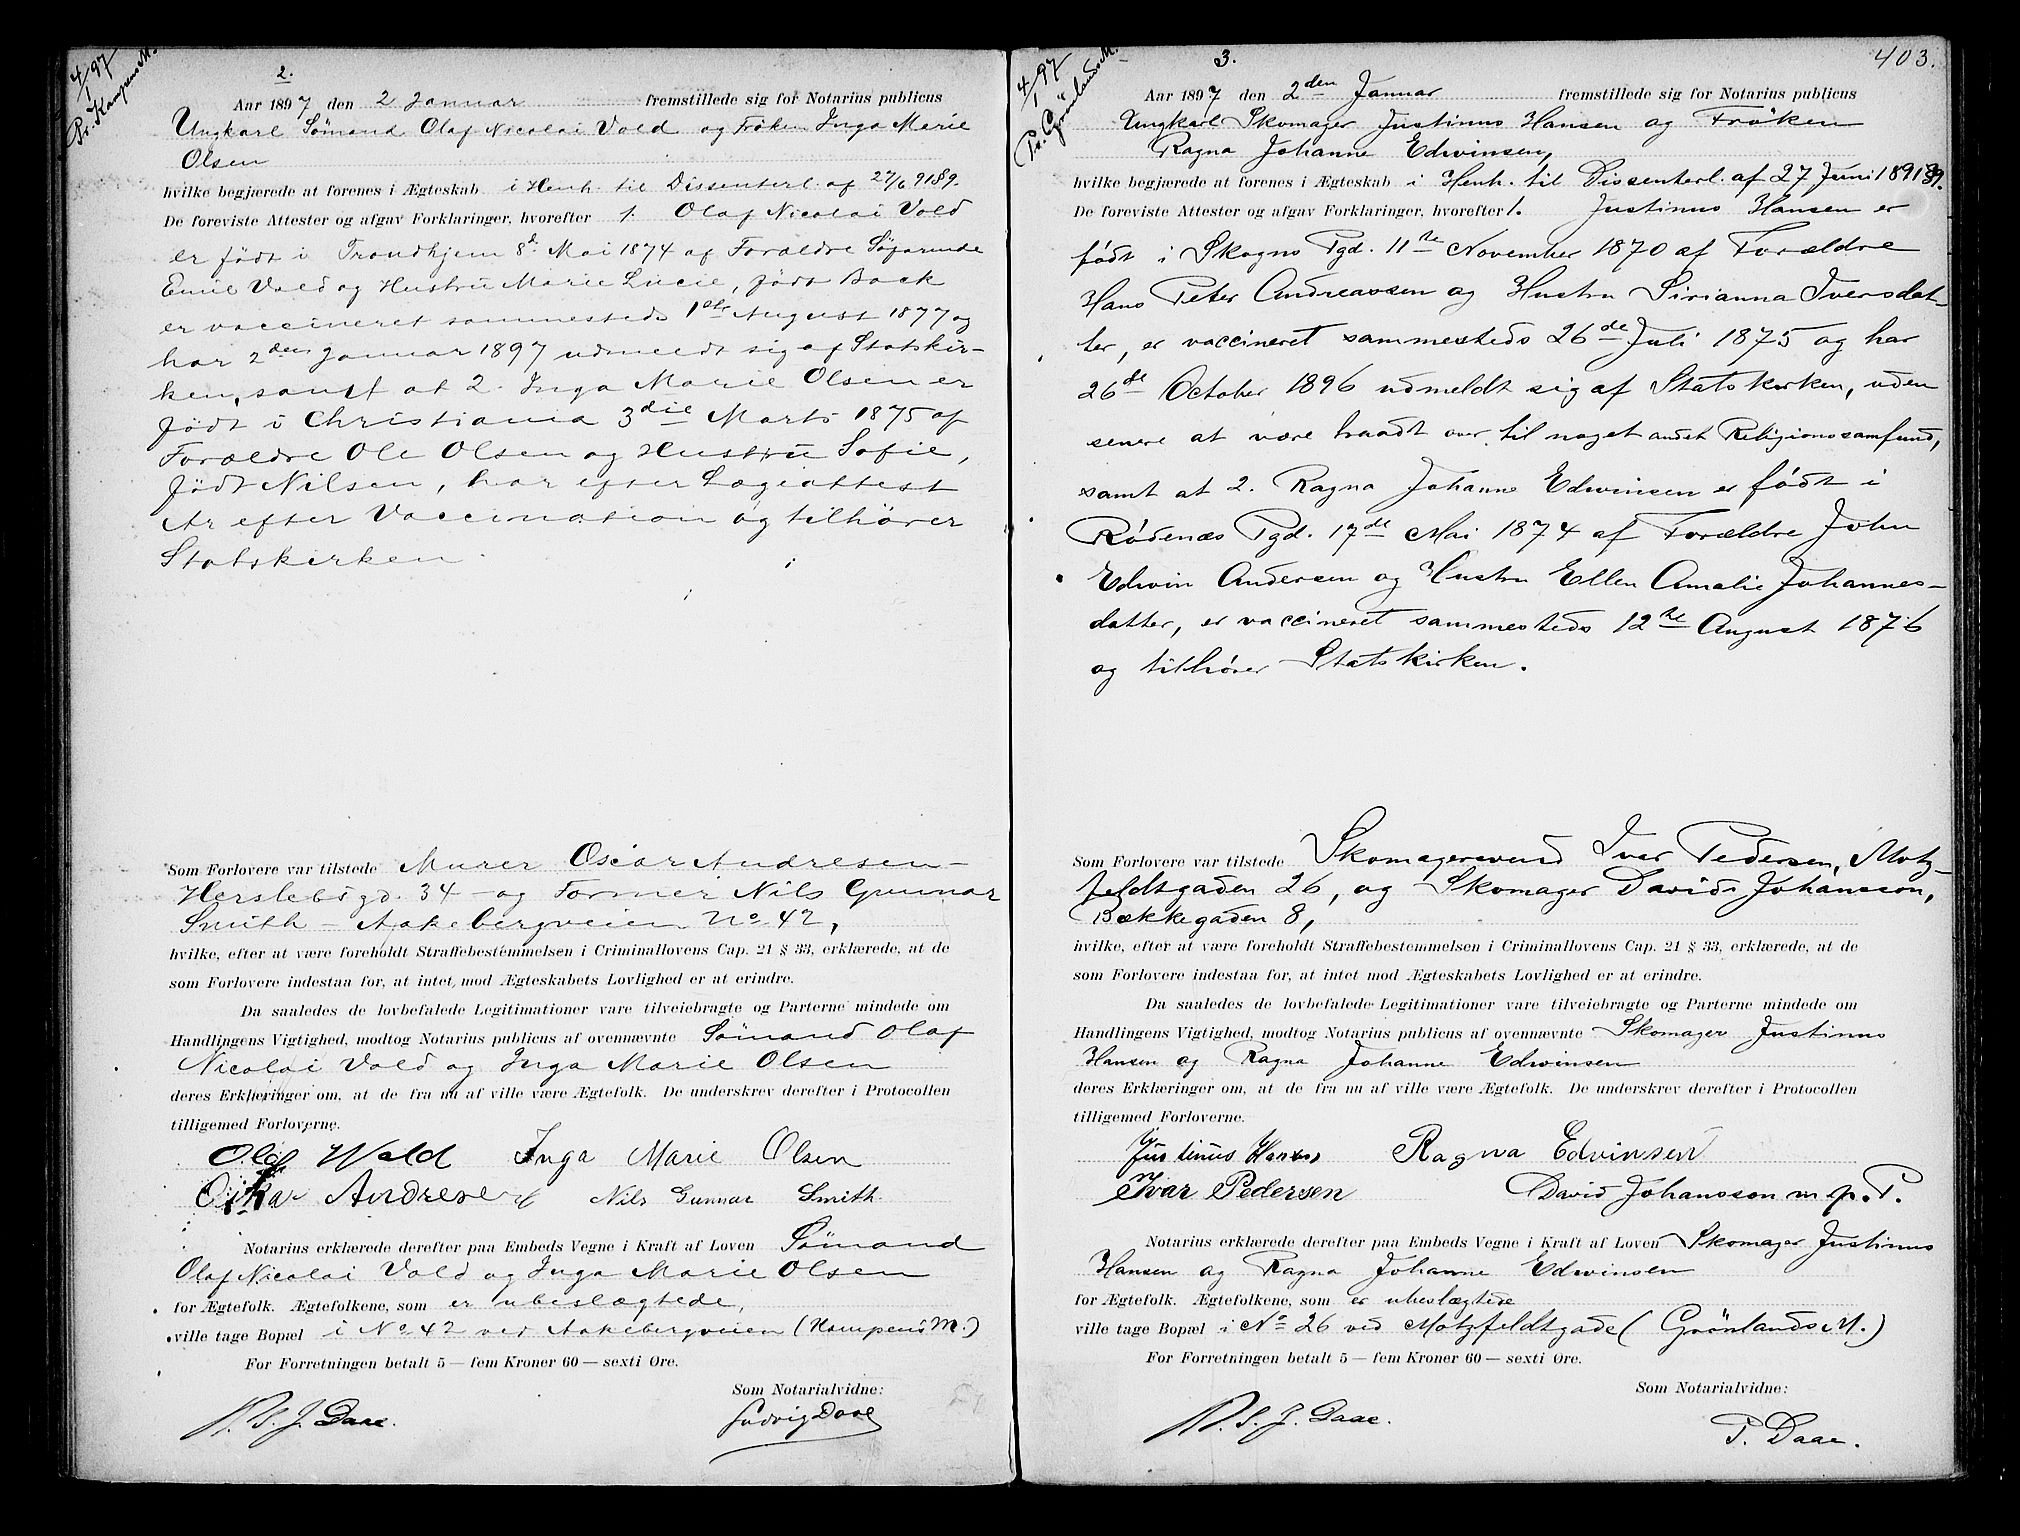 4/1 97
Pr. Kampens M.
2.
Aar 1897 den 2 Januar fremstillede sig for Notarius publicus
Ungkarl Sømand Olaf Nicolai Vold og Frøken Inga Marie
Olsen
hvilke begjærede at forenes i Ægteskab i Henh. til Dissenterl. af 27/6 91 § 9.
De foreviste Attester og afgav Forklaringer, hvorefter 1. Olaf Nicolai Vold
er født i Trondhjem 8d Mai 1874 af Forældre Søfarende
Emil Vold og Hustru Marie Lucie, født Back
er vaccineret sammesteds 1ste August 1877 og
har 2den Januar 1897 udmeldt sig af Statskir-
ken, samt at 2. Inga Marie Olsen er
født i Christiania 3die Marts 1875 af
Forældre Ole Olsen og Hustru Sofie,
født Nilsen, har efter Lægeattest
Ar efter Vaccination og tilhører
Statskirken.
Som Forlovere var tilstede Murer Oscar Andresen –
Herslebsgd. 34 – og Former Nils Gunnar
Smith – Aakebergveien No 42,
hvilke, efter at være foreholdt Straffebestemmelsen i Criminallovens Cap. 21 § 33, erklærede, at de
som Forlovere indestaa for, at intet mod Ægteskabets Lovlighed er at erindre.
Da saaledes de lovbefalede Legitimationer vare tilveiebragte og Parterne mindede om
Handlingens Vigtighed, modtog Notarius publicus af ovennævnte Sømand Olaf
Nicolai Vold og Inga Marie Olsen
deres Erklæringer om, at de fra nu af ville være Ægtefolk. De underskrev derefter i Protocollen
tilligemed Forloverne.
Olaf Wold Inga Marie Olsen
Oskar Andresen Nils Gunnar Smith
Notarius erklærede derefter paa Embeds Vegne i Kraft af Loven Sømand
Olaf Nicolai Vold og Inga Marie Olsen
for Ægtefolk. Ægtefolkene, som er ubeslægtede,
ville tage Bopæl i No 42 ved Aakebergveien (Kampens M.)
For Forretningen betalt 5 — fem Kroner 60 — sexti Øre.
Som Notarialvidne:
N. S. J. Daae.
Ludvig Daae
4/1 97
Pr. Grønlands M.
3.
403.
Aar 1897 den 2den Januar fremstillede sig for Notarius publicus
Ungkarl Skomager Justinus Hansen og Frøken
Ragna Johanne Edwinsen,
hvilke begjærede at forenes i Ægteskab i Henh. til Dissenterl. af 27 Juni 1891 § 9.
De foreviste Attester og afgav Forklaringer, hvorefter 1. Justinus Hansen er
født i Skogns Pgd. 11te November 1870 af Forældre
Hans Peter Andreassen og Hustru Sirianna Iversdat-
ter, er vaccineret sammesteds 26de Juli 1875 og har
26de October 1896 udmeldt sig af Statskirken, uden
senere at være traadt over til noget andet Religionssamfund,
samt at 2. Ragna Johanne Edwinsen er født i
Rødenæs Pgd. 17de Mai 1874 af Forældre John
Edwin Andersen og Hustru Ellen Amalie Johannes-
datter, er vaccineret sammesteds 12te August 1876
og tilhører Statskirken.
Som Forlovere var tilstede Skomagersvend Iver Pedersen, Motz-
feldtsgaden 26, og Skomager David Johansson,
Bækkegaden 8,
hvilke, efter at være foreholdt Straffebestemmelsen i Criminallovens Cap. 21 § 33, erklærede, at de
som Forlovere indestaa for, at intet mod Ægteskabets Lovlighed er at erindre.
Da saaledes de lovbefalede Legitimationer vare tilveiebragte og Parterne mindede om
Handlingens Vigtighed, modtog Notarius publicus af ovennævnte Skomager Justinus
Hansen og Ragna Johanne Edwinsen
deres Erklæringer om, at de fra nu af ville være Ægtefolk. De underskrev derefter i Protocollen
tilligemed Forloverne.
Justinus Hansen Ragna Edvinsen
Ivar Pedersen David Johansson m. p. P.
Notarius erklærede derefter paa Embeds Vegne i Kraft af Loven Skomager Justinus
Hansen og Ragna Johanne Edwinsen
for Ægtefolk. Ægtefolkene, som er ubeslægtede
ville tage Bopæl i No 26 ved Motzfeldtgade (Grønlands M.)
For Forretningen betalt 5 — fem Kroner 60 — sexti Øre.
Som Notarialvidne:
N. S. J. Daae.
P. Daae.